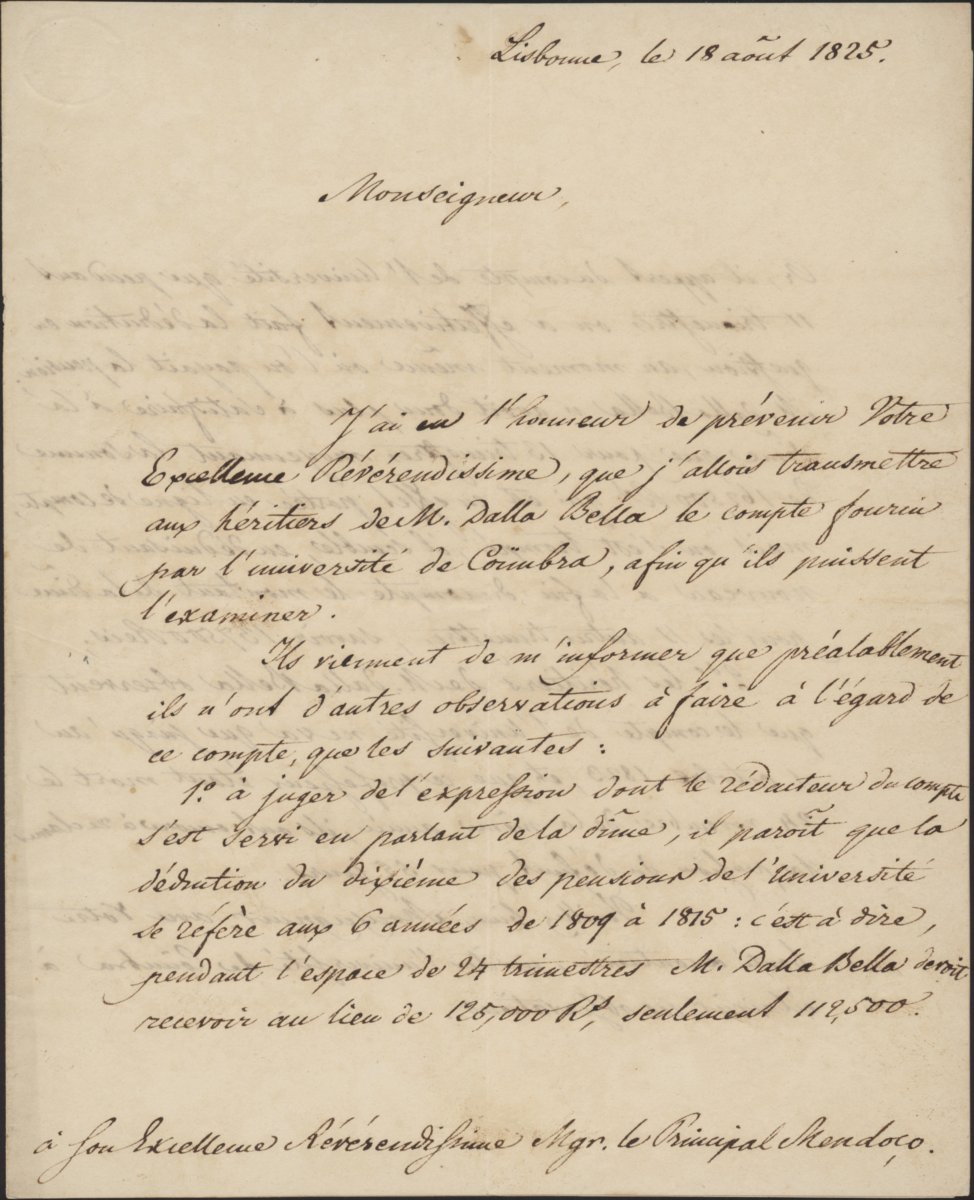 Lisbonne, le 18 août 1825.
Monseigneur,
J'ai eu l'honneur de prévenir Votre
Excellence Révérendissime, que j'allois transmettre
aux héritiers de M. Dalla Bella le compte fourni
par l'université de Coïmbra, afin qu'ils puissent
l'examiner.
Ils viennent de m'informer que préalablement
ils n'ont d'autres observations à faire à l'égard de
ce compte, que les suivantes:
1.º à juger de l'expression dont le rédacteur du compte
s'est servi en parlant de la dîme, il paroît que la
déduction du dixiéme des pensions de l'Université
se réfère aux 6 années de 1809 à 1815: c'est à dire,
pendant l'espace de 24 trimestres M. Dalla Bella devoit
recevoir au lieu de 125,000 Rs, seulement 112,500.
à Son Excellence Révérendissime Mgr. le Principal Mendoço.